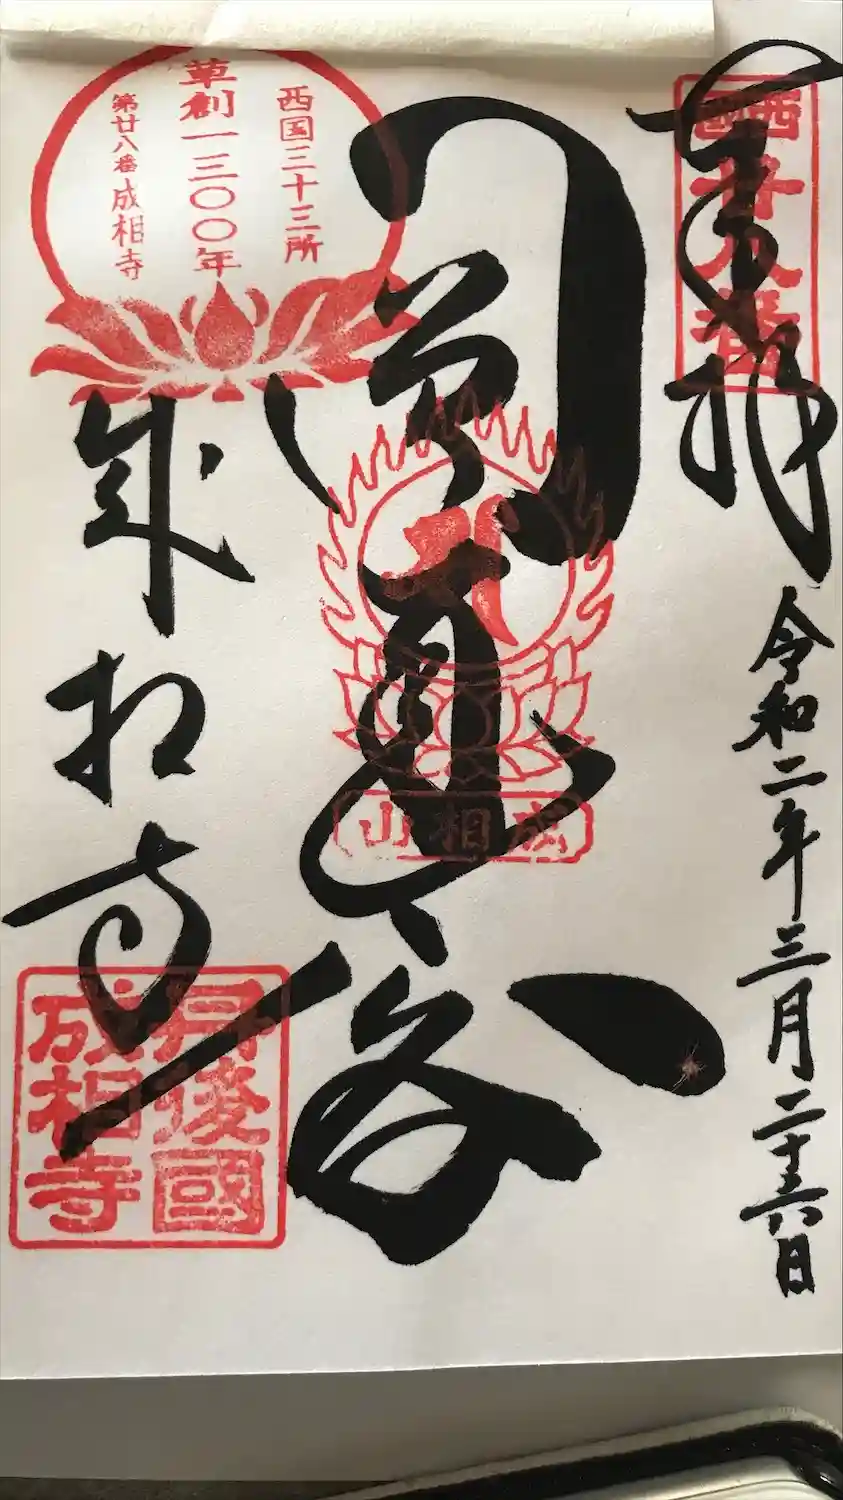 西國廿八番
奉拝
令和二年三月二十六日
成相山
西国三十三所
草創一三〇〇年
第廿八番成相寺
成相寺
丹後國
成相寺